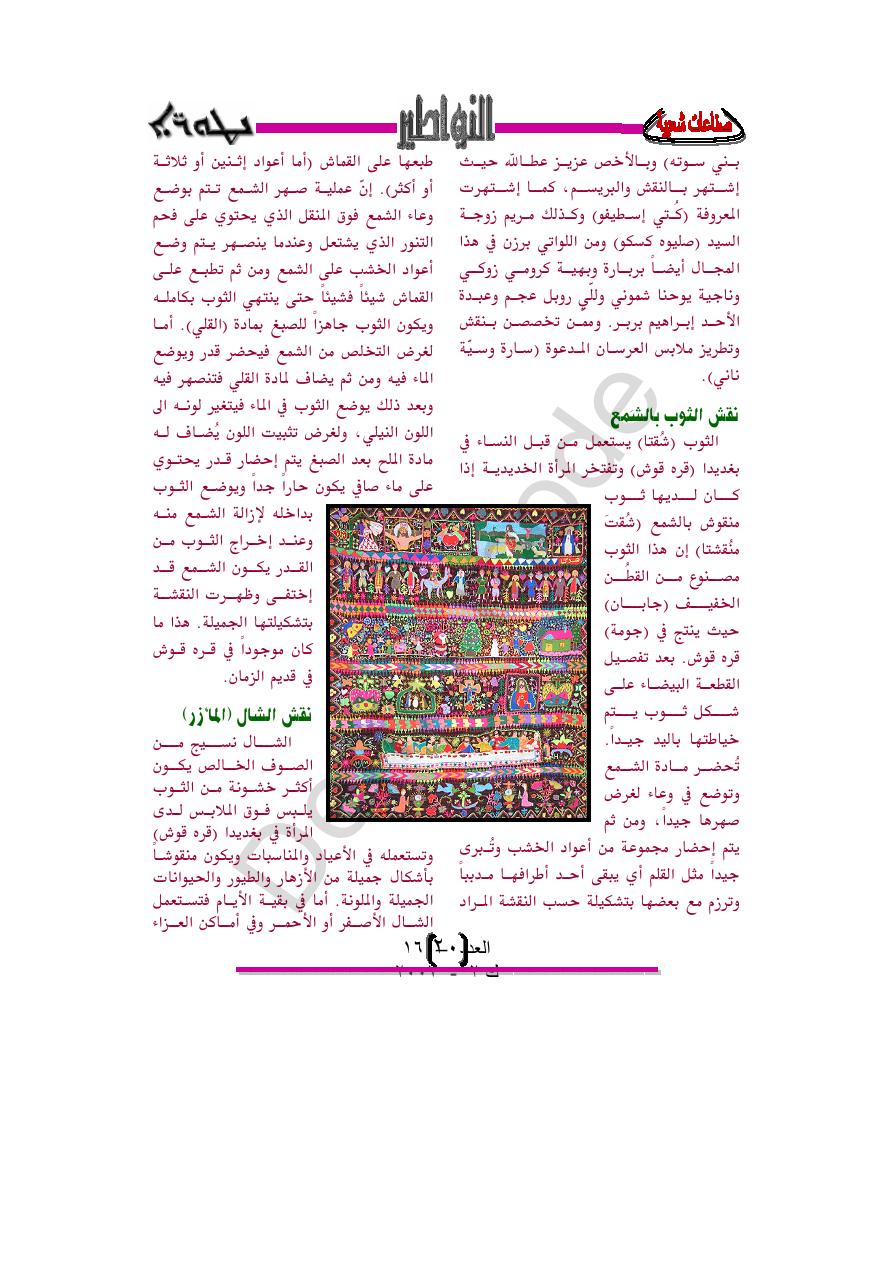 صناعات شعبية
النواطير
بني سوته) وبالأخص عزيز عطالله حيث
إشتهر بالنقش والبريسم، كما إشتهرت
المعروفة (كُتي إسطيفو) وكذلك مريم زوجة
السيد (صليوه كسكو) ومن اللواتي برزن في هذا
المجال أيضاً بربارة وبهية كرومي زوكي
وناجية يوحنا شموني وللّي روبل عجم وعبدة
الأحد إبراهيم بربر. وممن تخصصن بنقش
وتطريز ملابس العرسان المدعوة (سارة وسيّة
ناني).
نقش الثوب بالشمع
الثوب (شُقتا) يستعمل من قبل النساء في
بغديدا (قره قوش) وتفتخر المرأة الخديدية إذا
كان لديها ثوب
منقوش بالشمع (شُقتَ
منُقشتا) إن هذا الثوب
مصنوع من القطُن
الخفيف (جابان)
حيث ينتج في (جومة)
قره قوش. بعد تفصيل
القطعة البيضاء على
شكل ثوب يتم
خياطتها باليد جيداً.
تُحضر مادة الشمع
وتوضع في وعاء لغرض
صهرها جيداً، ومن ثم
يتم إحضار مجموعة من أعواد الخشب وتُبرى
جيداً مثل القلم أي يبقى أحد أطرافها مدبباً
وترزم مع بعضها بتشكيلة حسب النقشة المراد
طبعها على القماش (أما أعواد إثنين أو ثلاثة
أو أكثر). إنّ عملية صهر الشمع تتم بوضع
وعاء الشمع فوق المنقل الذي يحتوي على فحم
التنور الذي يشتعل وعندما ينصهر يتم وضع
أعواد الخشب على الشمع ومن ثم تطبع على
القماش شيئاً فشيئاً حتى ينتهي الثوب بكامله
ويكون الثوب جاهزاً للصبغ بمادة (القلي). أما
لغرض التخلص من الشمع فيحضر قدر ويوضع
الماء فيه ومن ثم يضاف لمادة القلي فتنصهر فيه
وبعد ذلك يوضع الثوب في الماء فيتغير لونه الى
اللون النيلي، ولغرض تثبيت اللون يُضاف له
مادة الملح بعد الصبغ يتم إحضار قدر يحتوي
على ماء صافي يكون حاراً جداً ويوضع الثوب
بداخله لإزالة الشمع منه
وعند إخراج الثوب من
القدر يكون الشمع قد
إختفى وظهرت النقشة
بتشكيلتها الجميلة. هذا ما
كان موجوداً في قره قوش
في قديم الزمان.
نقش الشال (المأزر)
الشال نسيج من
الصوف الخالص يكون
أكثر خشونة من الثوب
يلبس فوق الملابس لدى
المرأة في بغديدا (قره قوش)
وتستعمله في الأعياد والمناسبات ويكون منقوشاً
بأشكال جميلة من الأزهار والطيور والحيوانات
الجميلة والملونة. أما في بقية الأيام فتستعمل
الشال الأصفر أو الأحمر وفي أماكن العزاء
العدد ٢٠ ١٦